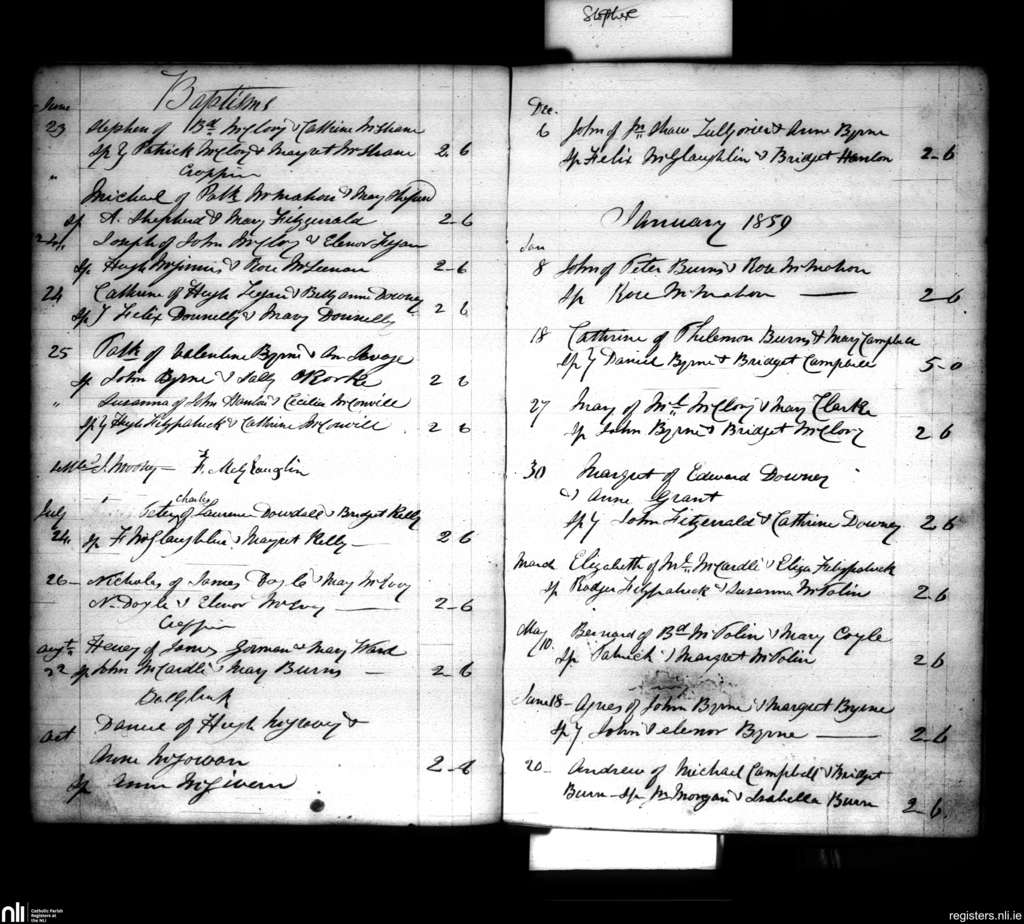 Stephe
Baptisms
June
23 Stephen of Bd McClory & Cathrine McShane
Sp Y Patrick McClory & Margret McShane 2-6
" Croppin
Michael of Patk McMahon & Mary Shepherd
Sp A. Shepherd & Mary Fitzgerald 2-6
24 Joseph of John McClory & Elenor Fegan
Sp Hugh McGinnis & Rose McLeenan 2-6
24 Cathrine of Hugh Fegan & Betty anne Downey
Sp Y Felix Donnelly & Mary Donnelly 2 6
25 Patk of Valentine Byrne & An Savage
Sp John Byrne & Sally ORorke 2 6
" Susanna of John Hanlon & Cecilia McConvill
Sp Y Hugh Fitzpatrick & Cathrine McConvill 2 6
J. Mooney F. McGLaughlin
July Charles
Peter of Laurence Dowdall & Bridget Kelly
24 Sp F McGlaughlin & Margret Kelly 2 6
26 - Nicholas of James Doyle & Mary McEvoy
N. Doyle & Elenor McEvoy 2-6
Croppin
Augt Henry of James Gorman & Mary Ward
22 Sp John McCardle & Mary Burns - 2-6
Oct Daniel of Hugh &
Anne McGowan 2-6
Sp Anne McGivern
Dec.
6 John of Jn Shaw & Anne Byrne
Sp Felix McGlaughlin & Bridget Hanlon 2-6
January 1859
Jan
8 John of Peter Burns & Rose McMahon
Sp Rose McMahon — 2-6
18 Cathrine of Philemon Burns & Mary Campbell
Sp Y Daniel Byrne & Bridget Campbell 5-0
27 Mary of Ml McClory & Mary Clarke
Sp John Byrne & Bridget McClory 2 6
30 Margret of Edward Downey
& Anne Grant
Sp Y John Fitzerrald & Cathrine Downey 2 6
March Elizabeth of Ml McCardle & Eliza Fitzpatrick
Sp Rodger Fitzpatrick & Susanna McPolin 2-6
May 10. Bernard of Bd McPolin & Mary Coyle
Sp Patrick & Margret McPolin 2 6
June 18 - Agnes of John Byrne & Margret Byrne
Sp Y John & elenor Byrne — 2-6
20 - Andrew of Michael Campbell & Bridget
Burn - Sp Morgan & Isabella Burn 2-6.
nli
Catholic Parish
Registers at
the NLI
registers.nli.ie